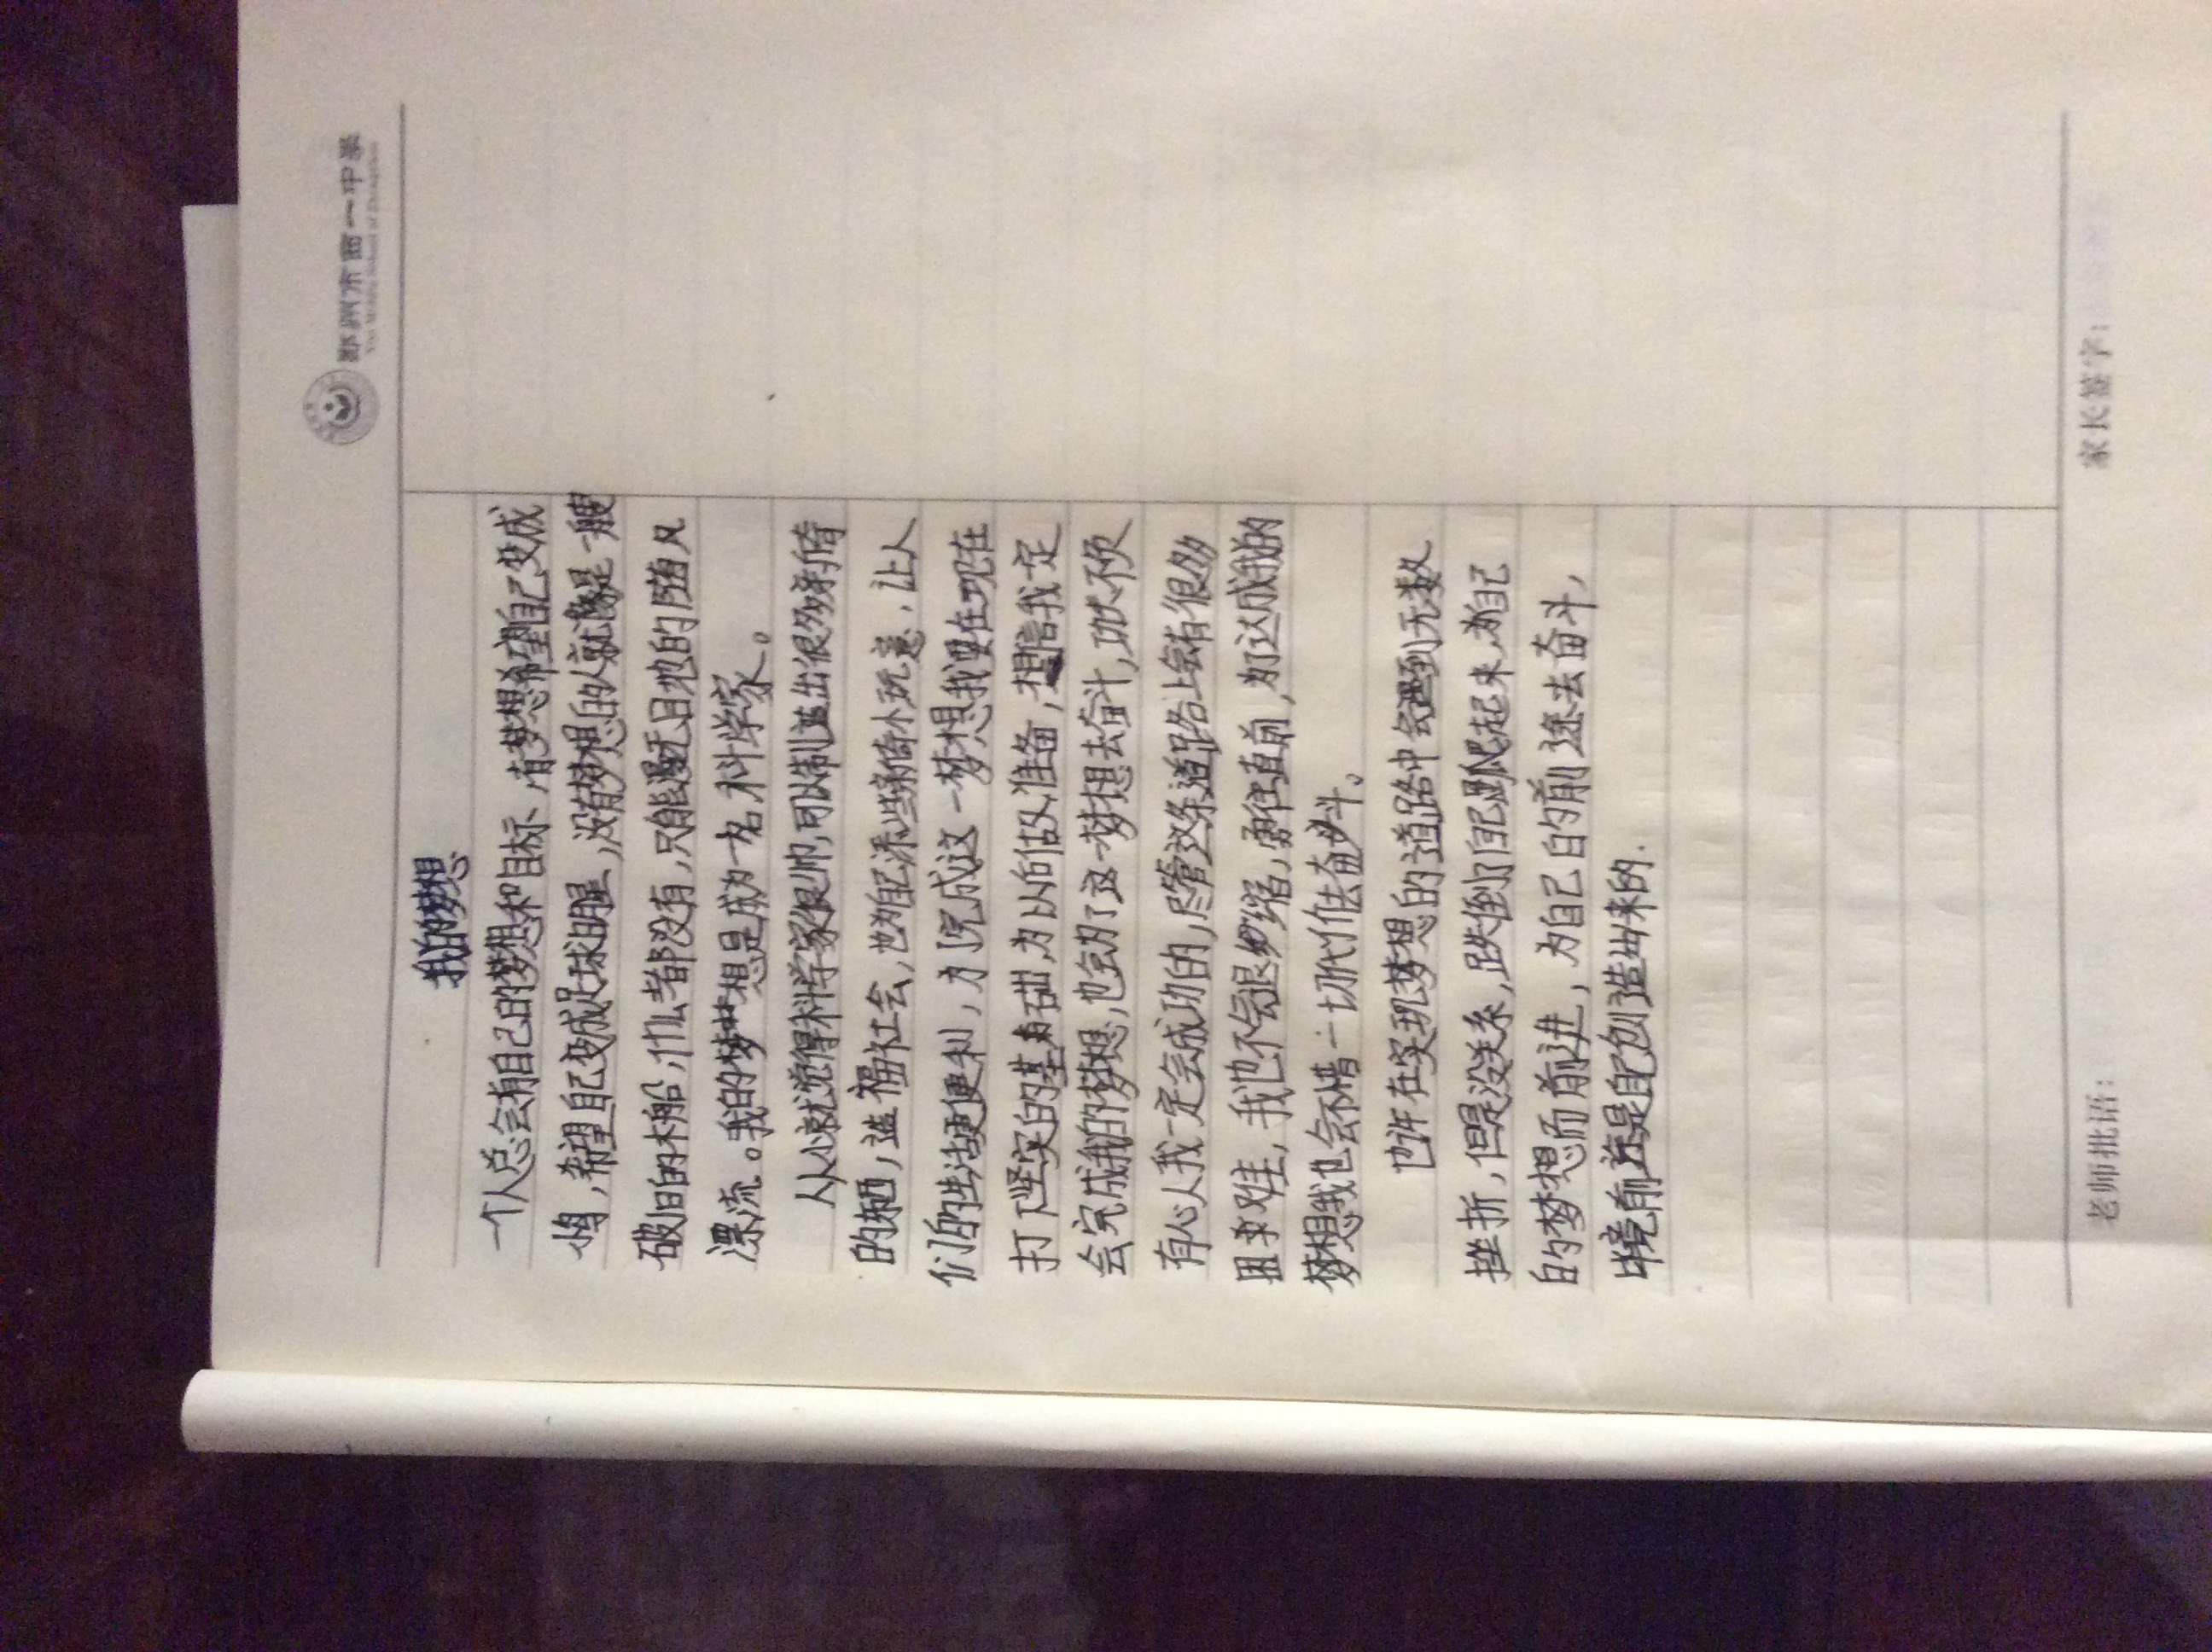 郑州市西一中学
我的梦想
一个人总会有自己的梦想和目标，有梦想希望自己变成
鸟，希望自己变成足球明星，没有梦想的人就像是一艘
破旧的木船，什么都没有，只能漫无目地的随风
漂流。我的梦想是成为一名科学家。
从小就觉得科学家很帅，可以制造出很多新奇
的东西，造福社会，也为自己添些新奇小玩意，让人
们的生活更便利，为了完成这一梦想我要在现在
打下坚实的基础，为以后做准备，相信我一定
会完成我的梦想，也会为了这一梦想去奋斗，功夫不负
有心人我一定会成功的，尽管这条道路上会有很多
困难，我也不会退缩，勇往直前，为了达成我的
梦想我也会不惜一切代价去奋斗。
也许在实现梦想的道路中会遇到无数
挫折，但是没关系，跌倒了自己爬起来，为自己
的梦想而前进，为自己的前途去奋斗，
毕竟前途是自己创造出来的.
老师批语：
家长签字：